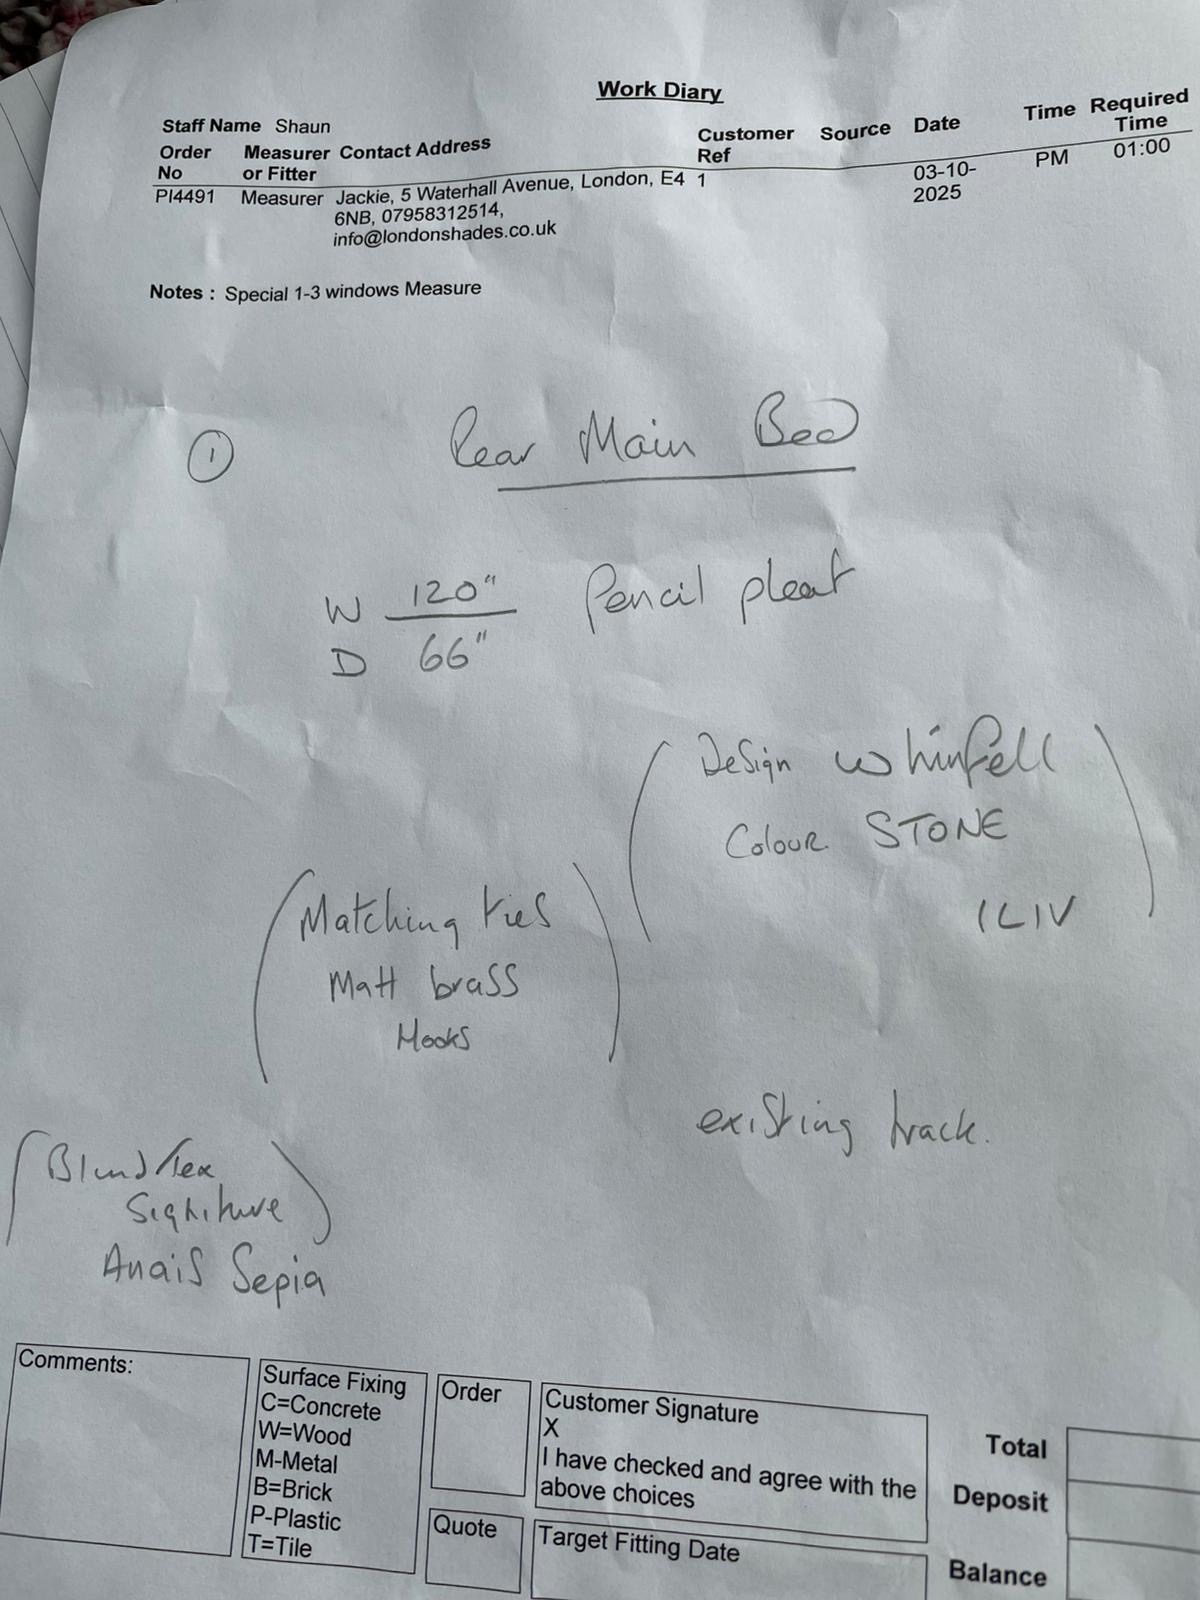 Work Diary
Staff Name Shaun
Order No Measurer or Fitter Contact Address Customer Ref Source Date Time Required Time
PI4491 Measurer Jackie, 5 Waterhall Avenue, London, E4 1 03-10- PM 01:00
6NB, 07958312514, 2025
info@londonshades.co.uk
Notes : Special 1-3 windows Measure
1 Rear Main Bed
W 120" Pencil pleat
D 66"
Design Whinfell
Colour STONE
ILIV
Matching ties
Matt brass
Hooks
existing track.
Blind/Tex
Signiture
Anais Sepia
Comments:
Surface Fixing
C=Concrete
W=Wood
M-Metal
B=Brick
P-Plastic
T=Tile
Order
Quote
Customer Signature
X
I have checked and agree with the
above choices
Target Fitting Date
Total
Deposit
Balance